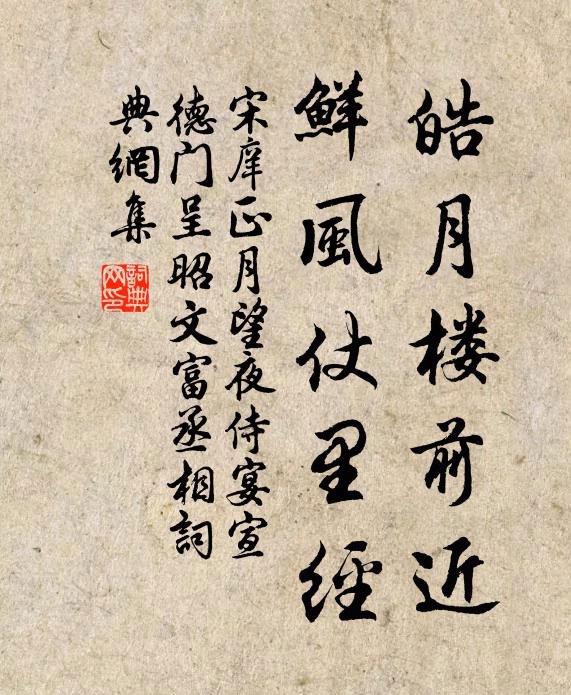 皓月楼前近
鮮風仗里經
宋庠正月望夜侍宴宣
德门呈昭文富丞相詞
典網集
詞典網印